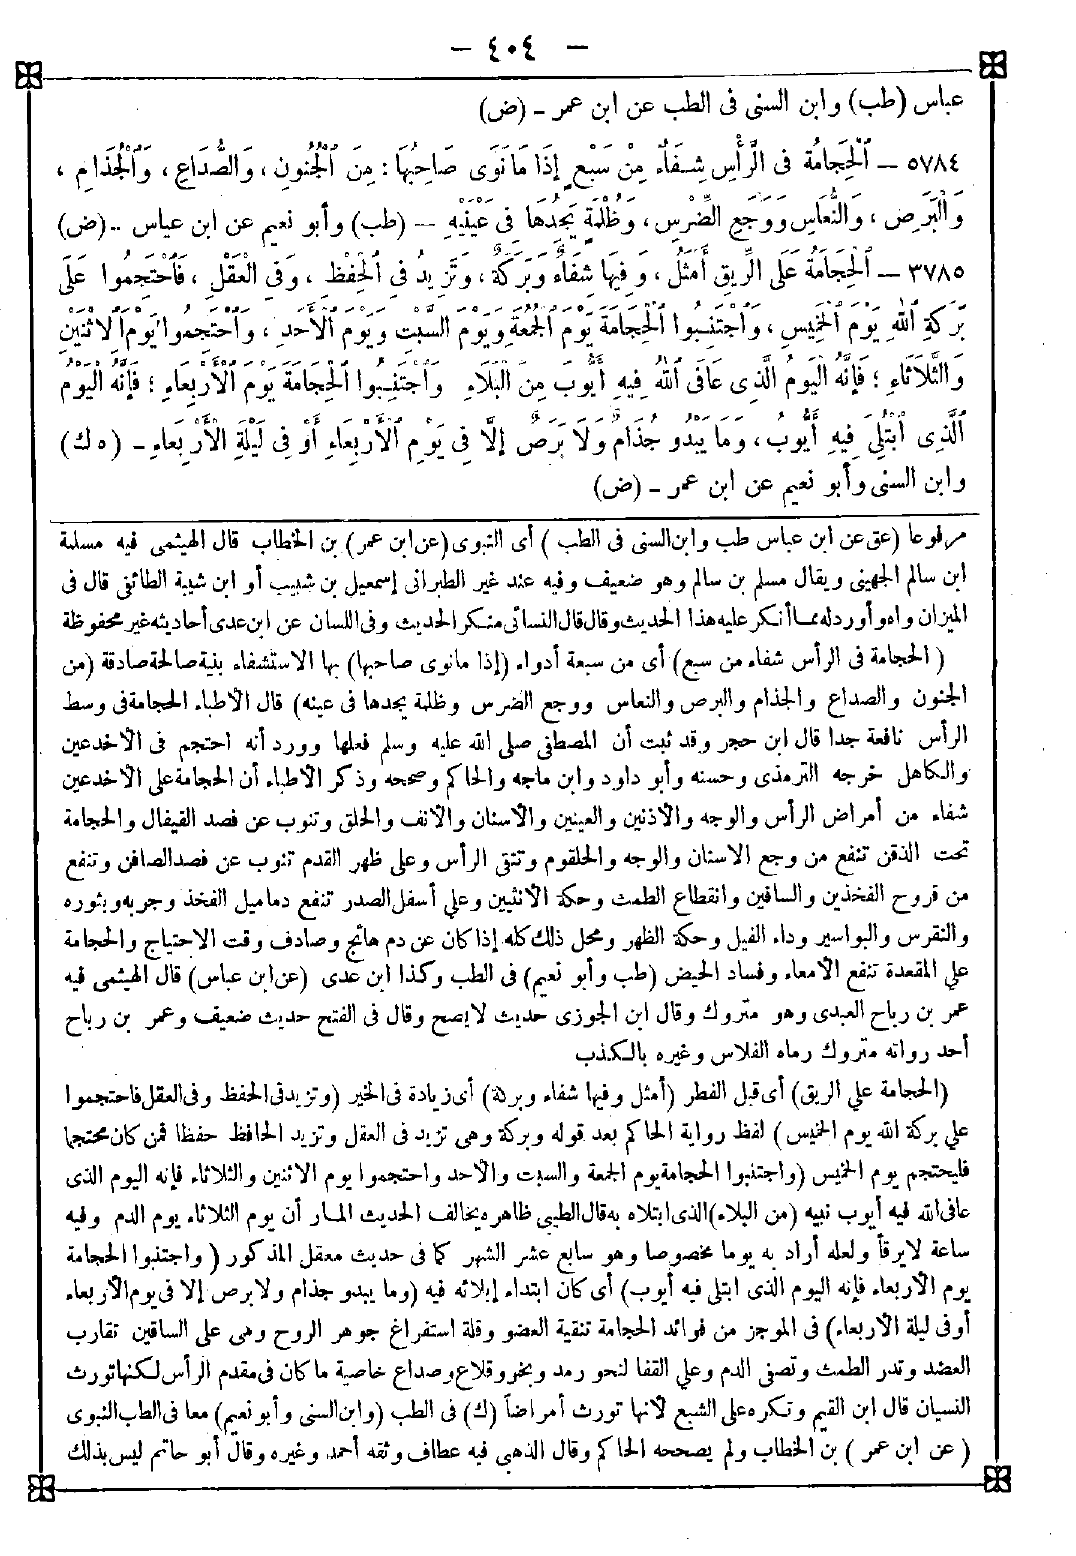 — ٤٠٤ —
عباس (طب) وابن السنى فى الطب عن ابن عمر - (ض)
٥٧٨٤ — اَلْحِجَامَةُ فى الرَّأْسِ شِفَاءٌ مِنْ سَبْعٍ إِذَا مَا نَوَى صَاحِبُهَا: مِنَ الْجُنُونِ، وَالصُّدَاعِ، وَالْجُذَامِ،
وَالْبَرَصِ، وَالنُّعَاسِ وَوَجَعِ الضِّرْسِ، وَظُلْمَةٍ يَجِدُهَا فِى عَيْنَيْهِ — (طب) وأبو نعيم عن ابن عباس - (ض)
٣٧٨٥ — اَلْحِجَامَةُ عَلَى الرِّيقِ أَمْثَلُ، وَفِيهَا شِفَاءٌ وَبَرَكَةٌ، وَتَزِيدُ فِى الْحِفْظِ، وَفِى الْعَقْلِ، فَاحْتَجِمُوا عَلَى
بَرَكَةِ اللهِ يَوْمَ الْخَمِيسِ، وَاجْتَنِبُوا الْحِجَامَةَ يَوْمَ الْجُمُعَةِ وَيَوْمَ السَّبْتِ وَيَوْمَ الْأَحَدِ، وَاحْتَجِمُوا يَوْمَ الِاثْنَيْنِ
وَالثَّلَاثَاءِ؛ فَإِنَّهُ الْيَوْمُ الَّذِى عَافَى اللهُ فِيهِ أَيُّوبَ مِنَ الْبَلَاءِ وَاجْتَنِبُوا الْحِجَامَةَ يَوْمَ الْأَرْبِعَاءِ؛ فَإِنَّهُ الْيَوْمُ
الَّذِى ابْتُلِىَ فِيهِ أَيُّوبُ، وَمَا يَبْدُو جُذَامٌ وَلَا بَرَصٌ إِلَّا فِى يَوْمِ الْأَرْبِعَاءِ أَوْ فِى لَيْلَةِ الْأَرْبِعَاءِ - (ه ك)
وابن السنى وأبو نعيم عن ابن عمر - (ض)
مرفوعا (عق عن ابن عباس طب وابن السنى فى الطب) أى النبوى (عن ابن عمر) بن الخطاب قال الهيثمى فيه مسلمة
ابن سالم الجهنى ويقال مسلم بن سالم وهو ضعيف وفيه عند غير الطبرانى إسمعيل بن شبيب أو ابن شيبة الطائفى قال فى
الميزان واه وأورد له مما أنكر عليه هذا الحديث وقال قال النسائى منكر الحديث وفى اللسان عن ابن عدى أحاديثه غير محفوظة
(الحجامة فى الرأس شفاء من سبع) أى من سبعة أدواء (إذا ما نوى صاحبها) بها الاستشفاء بنية صالحة صادقة (من
الجنون والصداع والجذام والبرص والنعاس ووجع الضرس وظلمة يجدها فى عينه) قال الأطباء الحجامة فى وسط
الرأس نافعة جدا قال ابن حجر وقد ثبت أن المصطفى صلى الله عليه وسلم فعلها وورد أنه احتجم فى الأخدعين
والكاهل خرجه الترمذى وحسنه وأبو داود وابن ماجه والحاكم وصححه وذكر الأطباء أن الحجامة على الأخدعين
شفاء من أمراض الرأس والوجه والأذنين والعينين والأسنان والأنف والحلق وتنوب عن فصد القيفال والحجامة
تحت الذقن تنفع من وجع الأسنان والوجه والحلقوم وتنقى الرأس وعلى ظهر القدم تنوب عن فصد الصافن وتنفع
من قروح الفخذين والساقين وانقطاع الطمث وحكة الأنثيين وعلى أسفل الصدر تنفع دماميل الفخذ وجربه وبثوره
والنقرس والبواسير وداء الفيل وحكة الظهر ومحل ذلك كله إذا كان عن دم هائج وصادف وقت الاحتياج والحجامة
على المقعدة تنفع الأمعاء وفساد الحيض (طب وأبو نعيم) فى الطب وكذا ابن عدى (عن ابن عباس) قال الهيثمى فيه
عمر بن رباح العبدى وهو متروك وقال ابن الجوزى حديث لا يصح وقال فى الفتح حديث ضعيف وعمر بن رباح
أحد رواته متروك رماه الفلاس وغيره بالكذب
(الحجامة على الريق) أى قبل الفطر (أمثل وفيها شفاء وبركة) أى زيادة فى الخير (وتزيد فى الحفظ وفى العقل فاحتجموا
على بركة الله يوم الخميس) لفظ رواية الحاكم بعد قوله وبركة وهى تزيد فى العقل وتزيد الحافظ حفظا فمن كان محتجما
فليحتجم يوم الخميس (واجتنبوا الحجامة يوم الجمعة والسبت والأحد واحتجموا يوم الاثنين والثلاثاء فإنه اليوم الذى
عافى الله فيه أيوب نبيه (من البلاء) الذى ابتلاه به قال الطيبى ظاهره يخالف الحديث المار أن يوم الثلاثاء يوم الدم وفيه
ساعة لا يرقأ ولعله أراد به يوما مخصوصا وهو سابع عشر الشهر كما فى حديث معقل المذكور (واجتنبوا الحجامة
يوم الأربعاء فإنه اليوم الذى ابتلى فيه أيوب) أى كان ابتداء إبلائه فيه (وما يبدو جذام ولا برص إلا فى يوم الأربعاء
أو فى ليلة الأربعاء) فى الموجز من فوائد الحجامة تنقية العضو وقلة استفراغ جوهر الروح وهى على الساقين تقارب
الفصد وتدر الطمث وتصفى الدم وعلى القفا لنحو رمد وبخر وقلاع وصداع خاصية ما كان فى مقدم الرأس لكنها تورث
النسيان قال ابن القيم وتكره على الشبع لأنها تورث أمراضاً (ك) فى الطب (وابن السنى وأبو نعيم) معا فى الطب النبوى
(عن ابن عمر) بن الخطاب ولم يصححه الحاكم وقال الذهبى فيه عطاف وثقه أحمد وغيره وقال أبو حاتم ليس بذلك